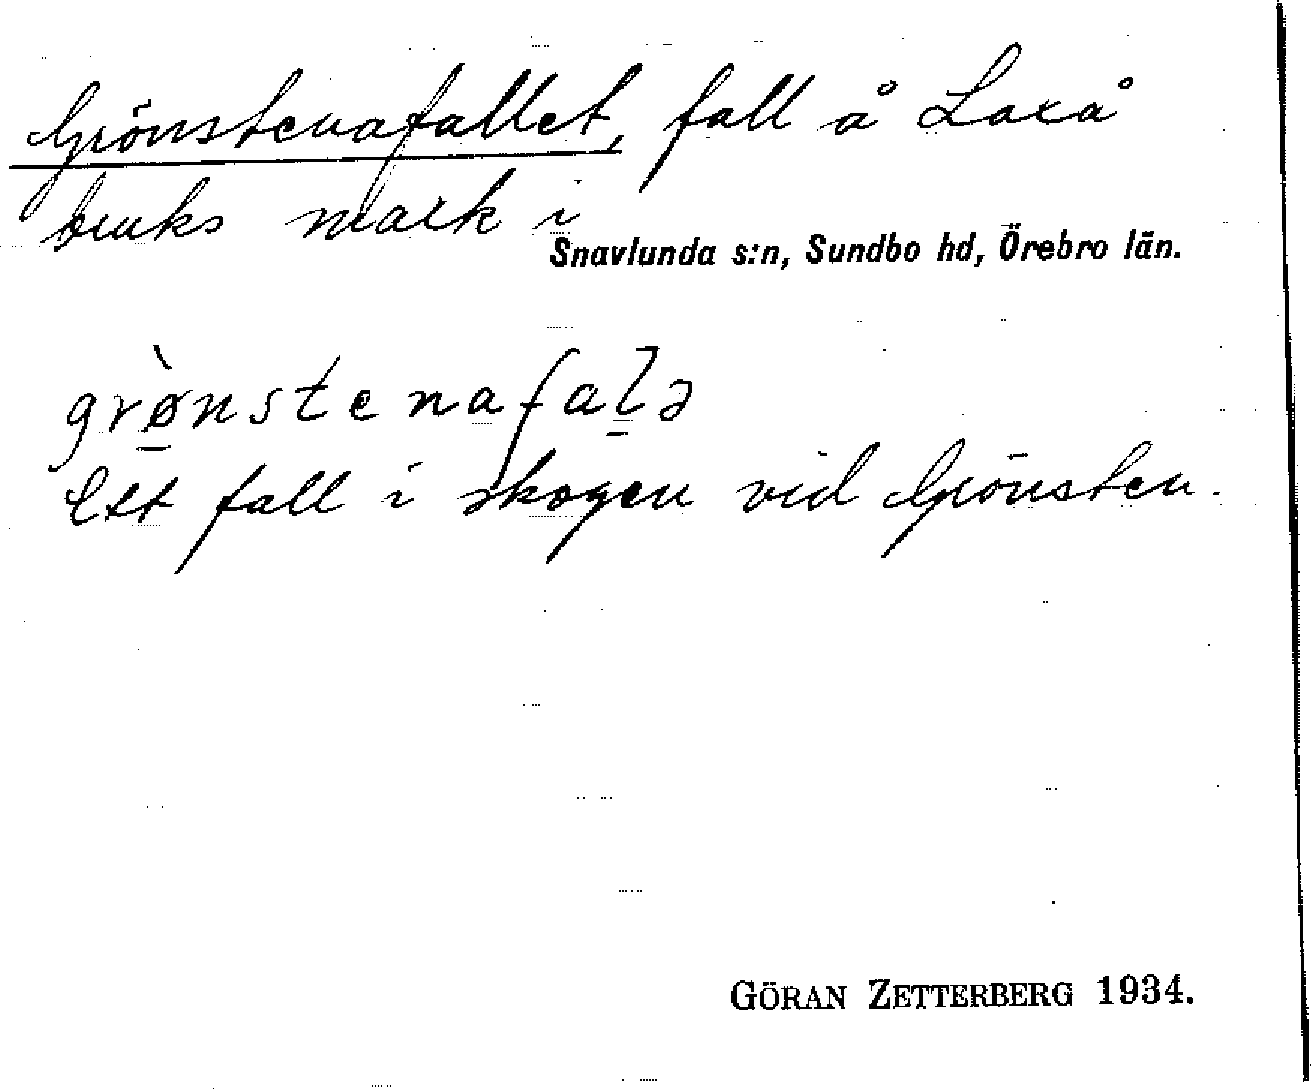 Grönstenafallet, fall å Laxå
bruks mark i
Snavlunda s:n, Sundbo hd, Örebro län.
grø̀nstenafalə
Ett fall i skogen vid Grönsten.
GÖRAN ZETTERBERG 1934.